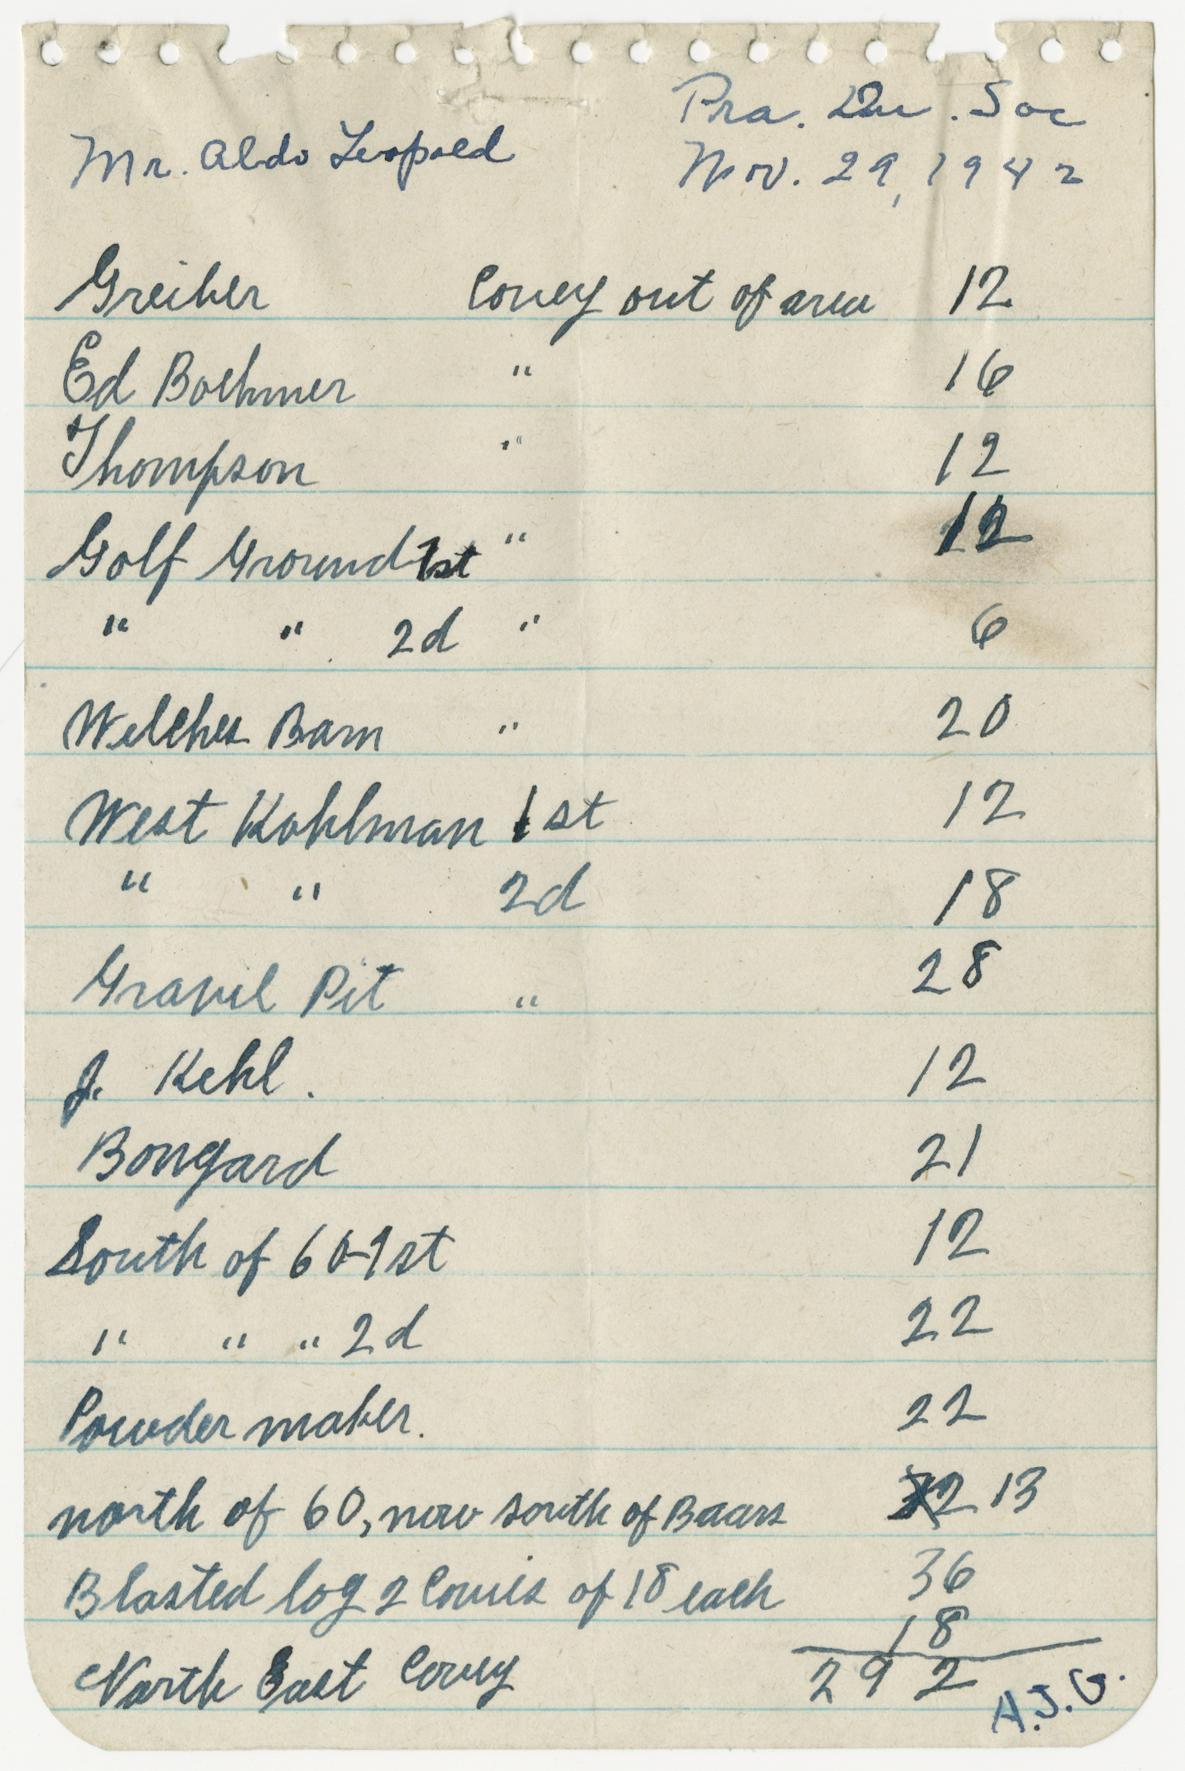 Pra. Du. Sac
Mr. Aldo Leopold
Nov. 29, 1942
Greiber Covey out of area 12
Ed Boehmer " 16
Thompson " 12
Golf Ground 1st " 12
" " 2d " 6
Welches Barn " 20
West Kohlman 1st 12
" " 2d 18
Gravel Pit " 28
J. Kehl. 12
Bongard 21
South of 60-1st 12
" " " 2d 22
Powder maker. 22
north of 60, now south of Baars 13
Blasted log 2 Covies of 18 each 36
North East Covey 18
292
A.J.G.